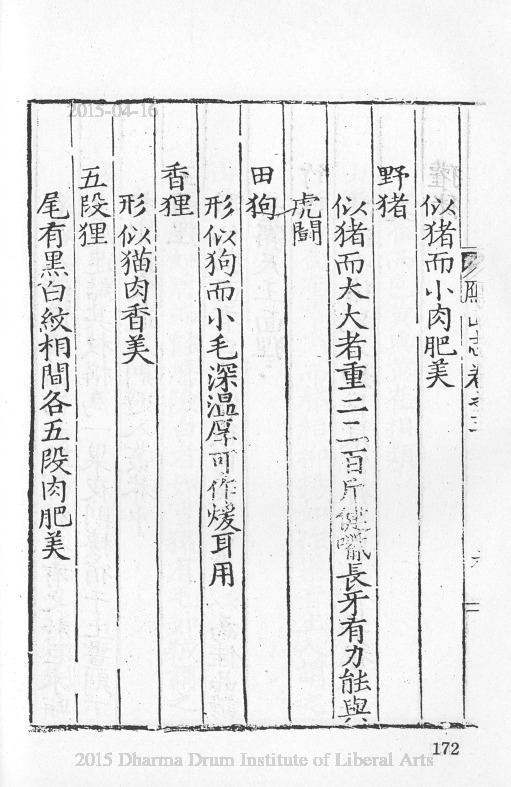 似猪而小肉肥美
野猪
似猪而大大者重二三百斤健嘴長牙有力能與
虎鬪
田狗
形似狗而小毛深溫厚可作煖耳用
香狸
形似猫肉香美
五段狸
尾有黑白紋相間各五段肉肥美
山志卷之三
172
2015-04-16
2015 Dharma Drum Institute of Liberal Arts